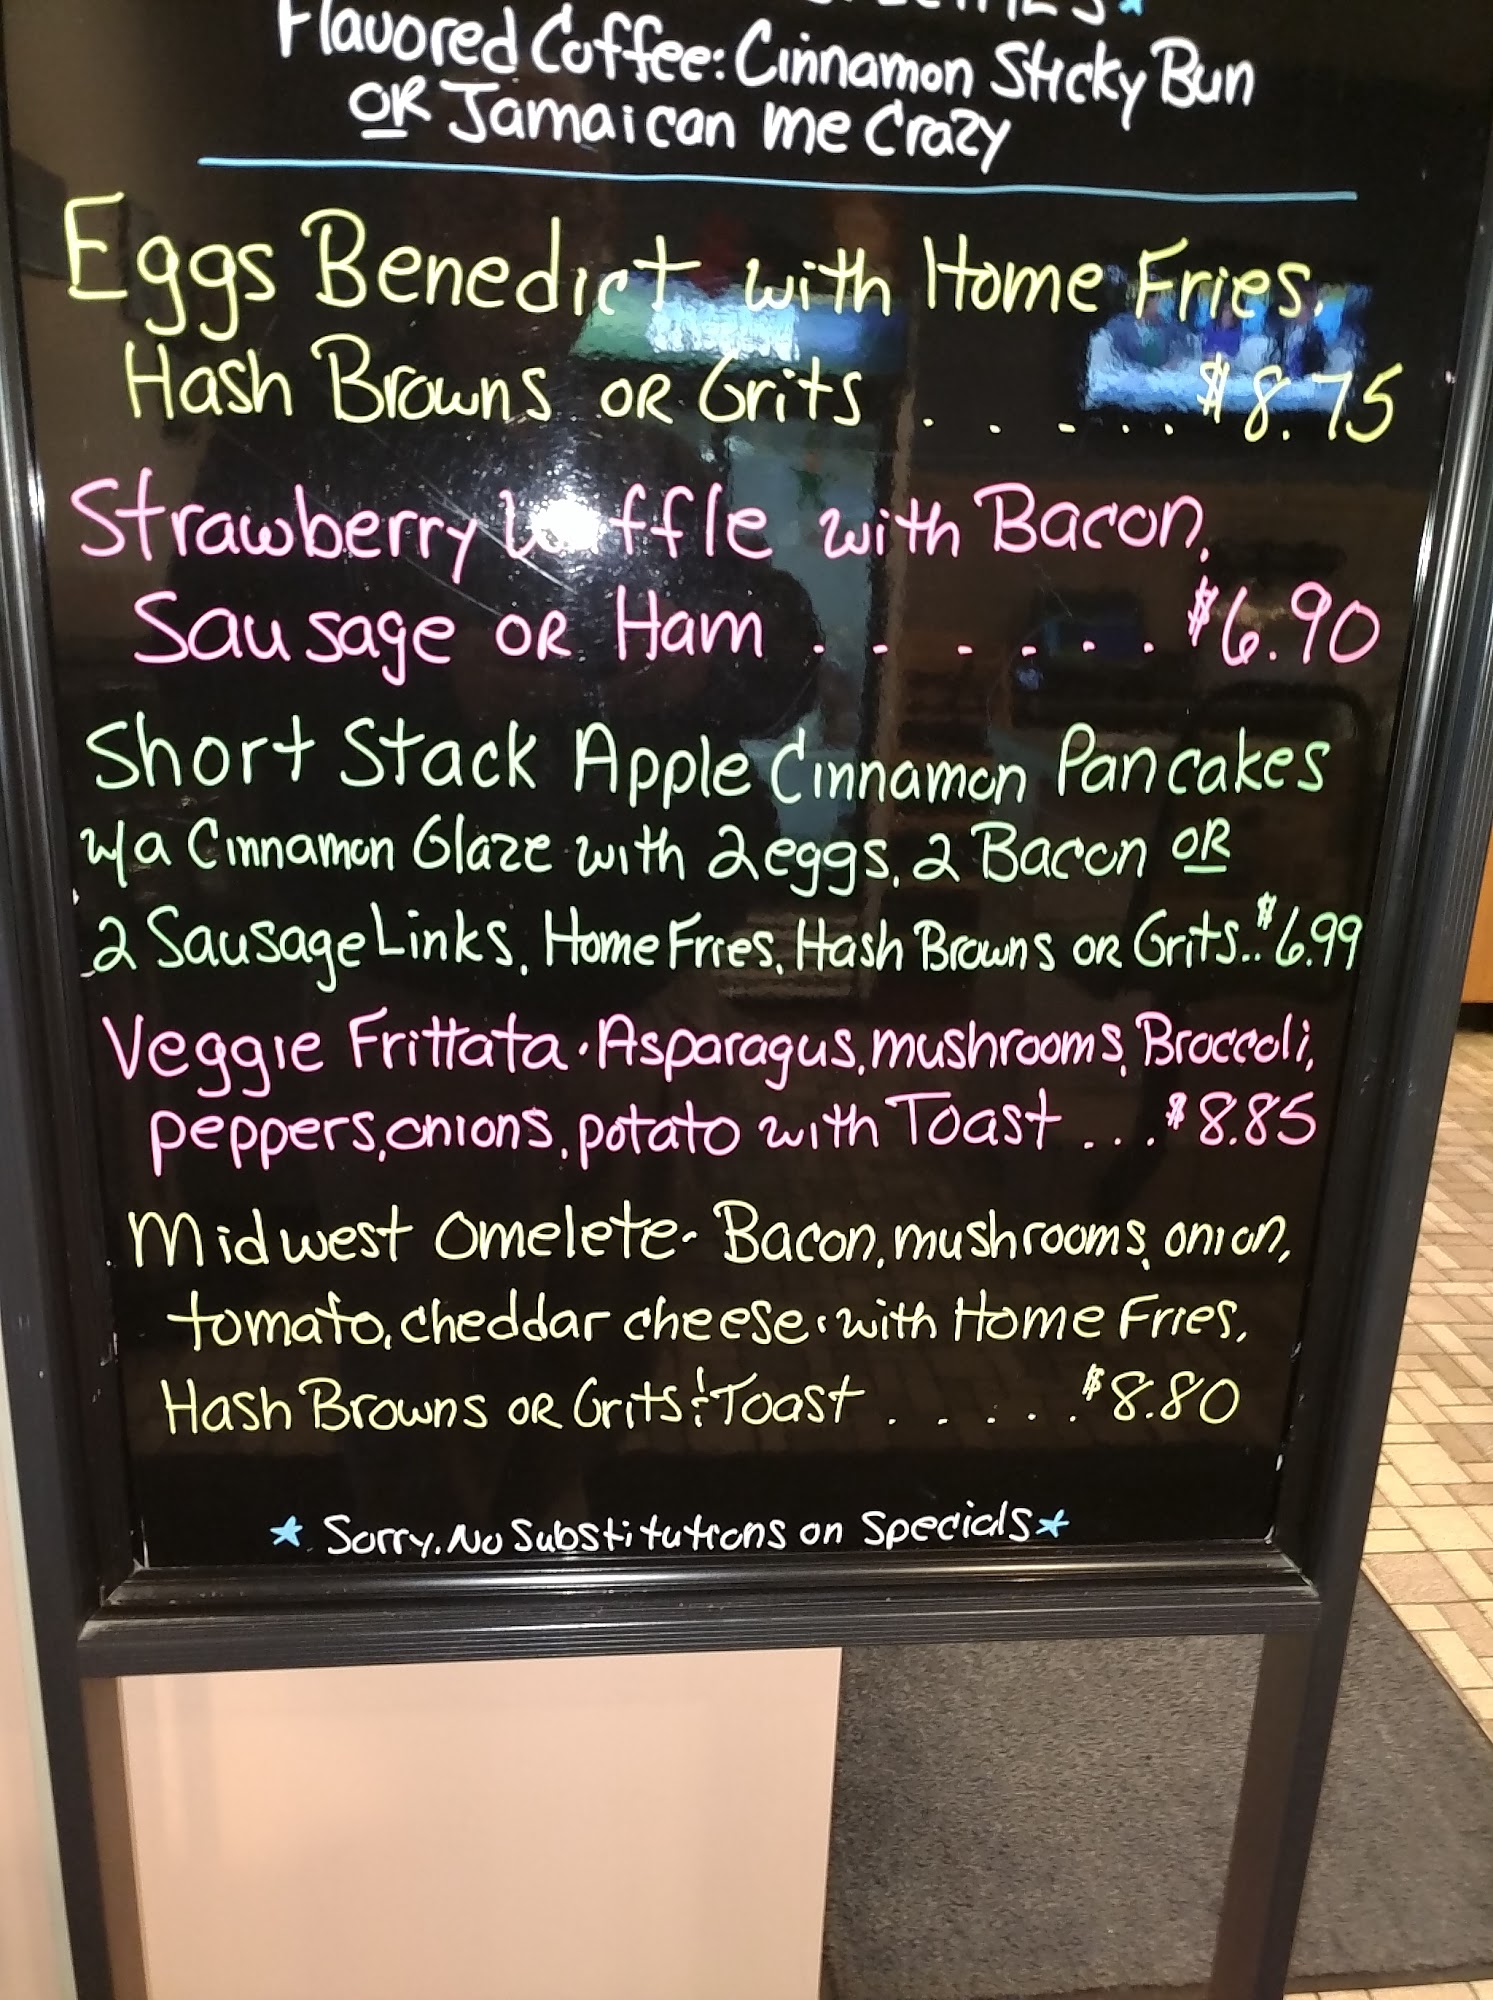 Flavored Coffee: Cinnamon Sticky Bun
OR Jamaican me Crazy
Eggs Benedict with Home Fries,
Hash Browns OR Grits . . . . . . $8.75
Strawberry Waffle with Bacon,
Sausage OR Ham . . . . . . . $6.90
Short Stack Apple Cinnamon Pancakes
w/a Cinnamon Glaze with 2 eggs, 2 Bacon OR
2 Sausage Links, Home Fries, Hash Browns OR Grits.. $6.99
Veggie Frittata · Asparagus, mushrooms, Broccoli,
peppers, onions, potato with Toast . . . $8.85
Midwest Omelete - Bacon, mushrooms, onion,
tomato, cheddar cheese · with Home Fries,
Hash Browns OR Grits & Toast . . . . . $8.80
* Sorry. No Substitutions on Specials *